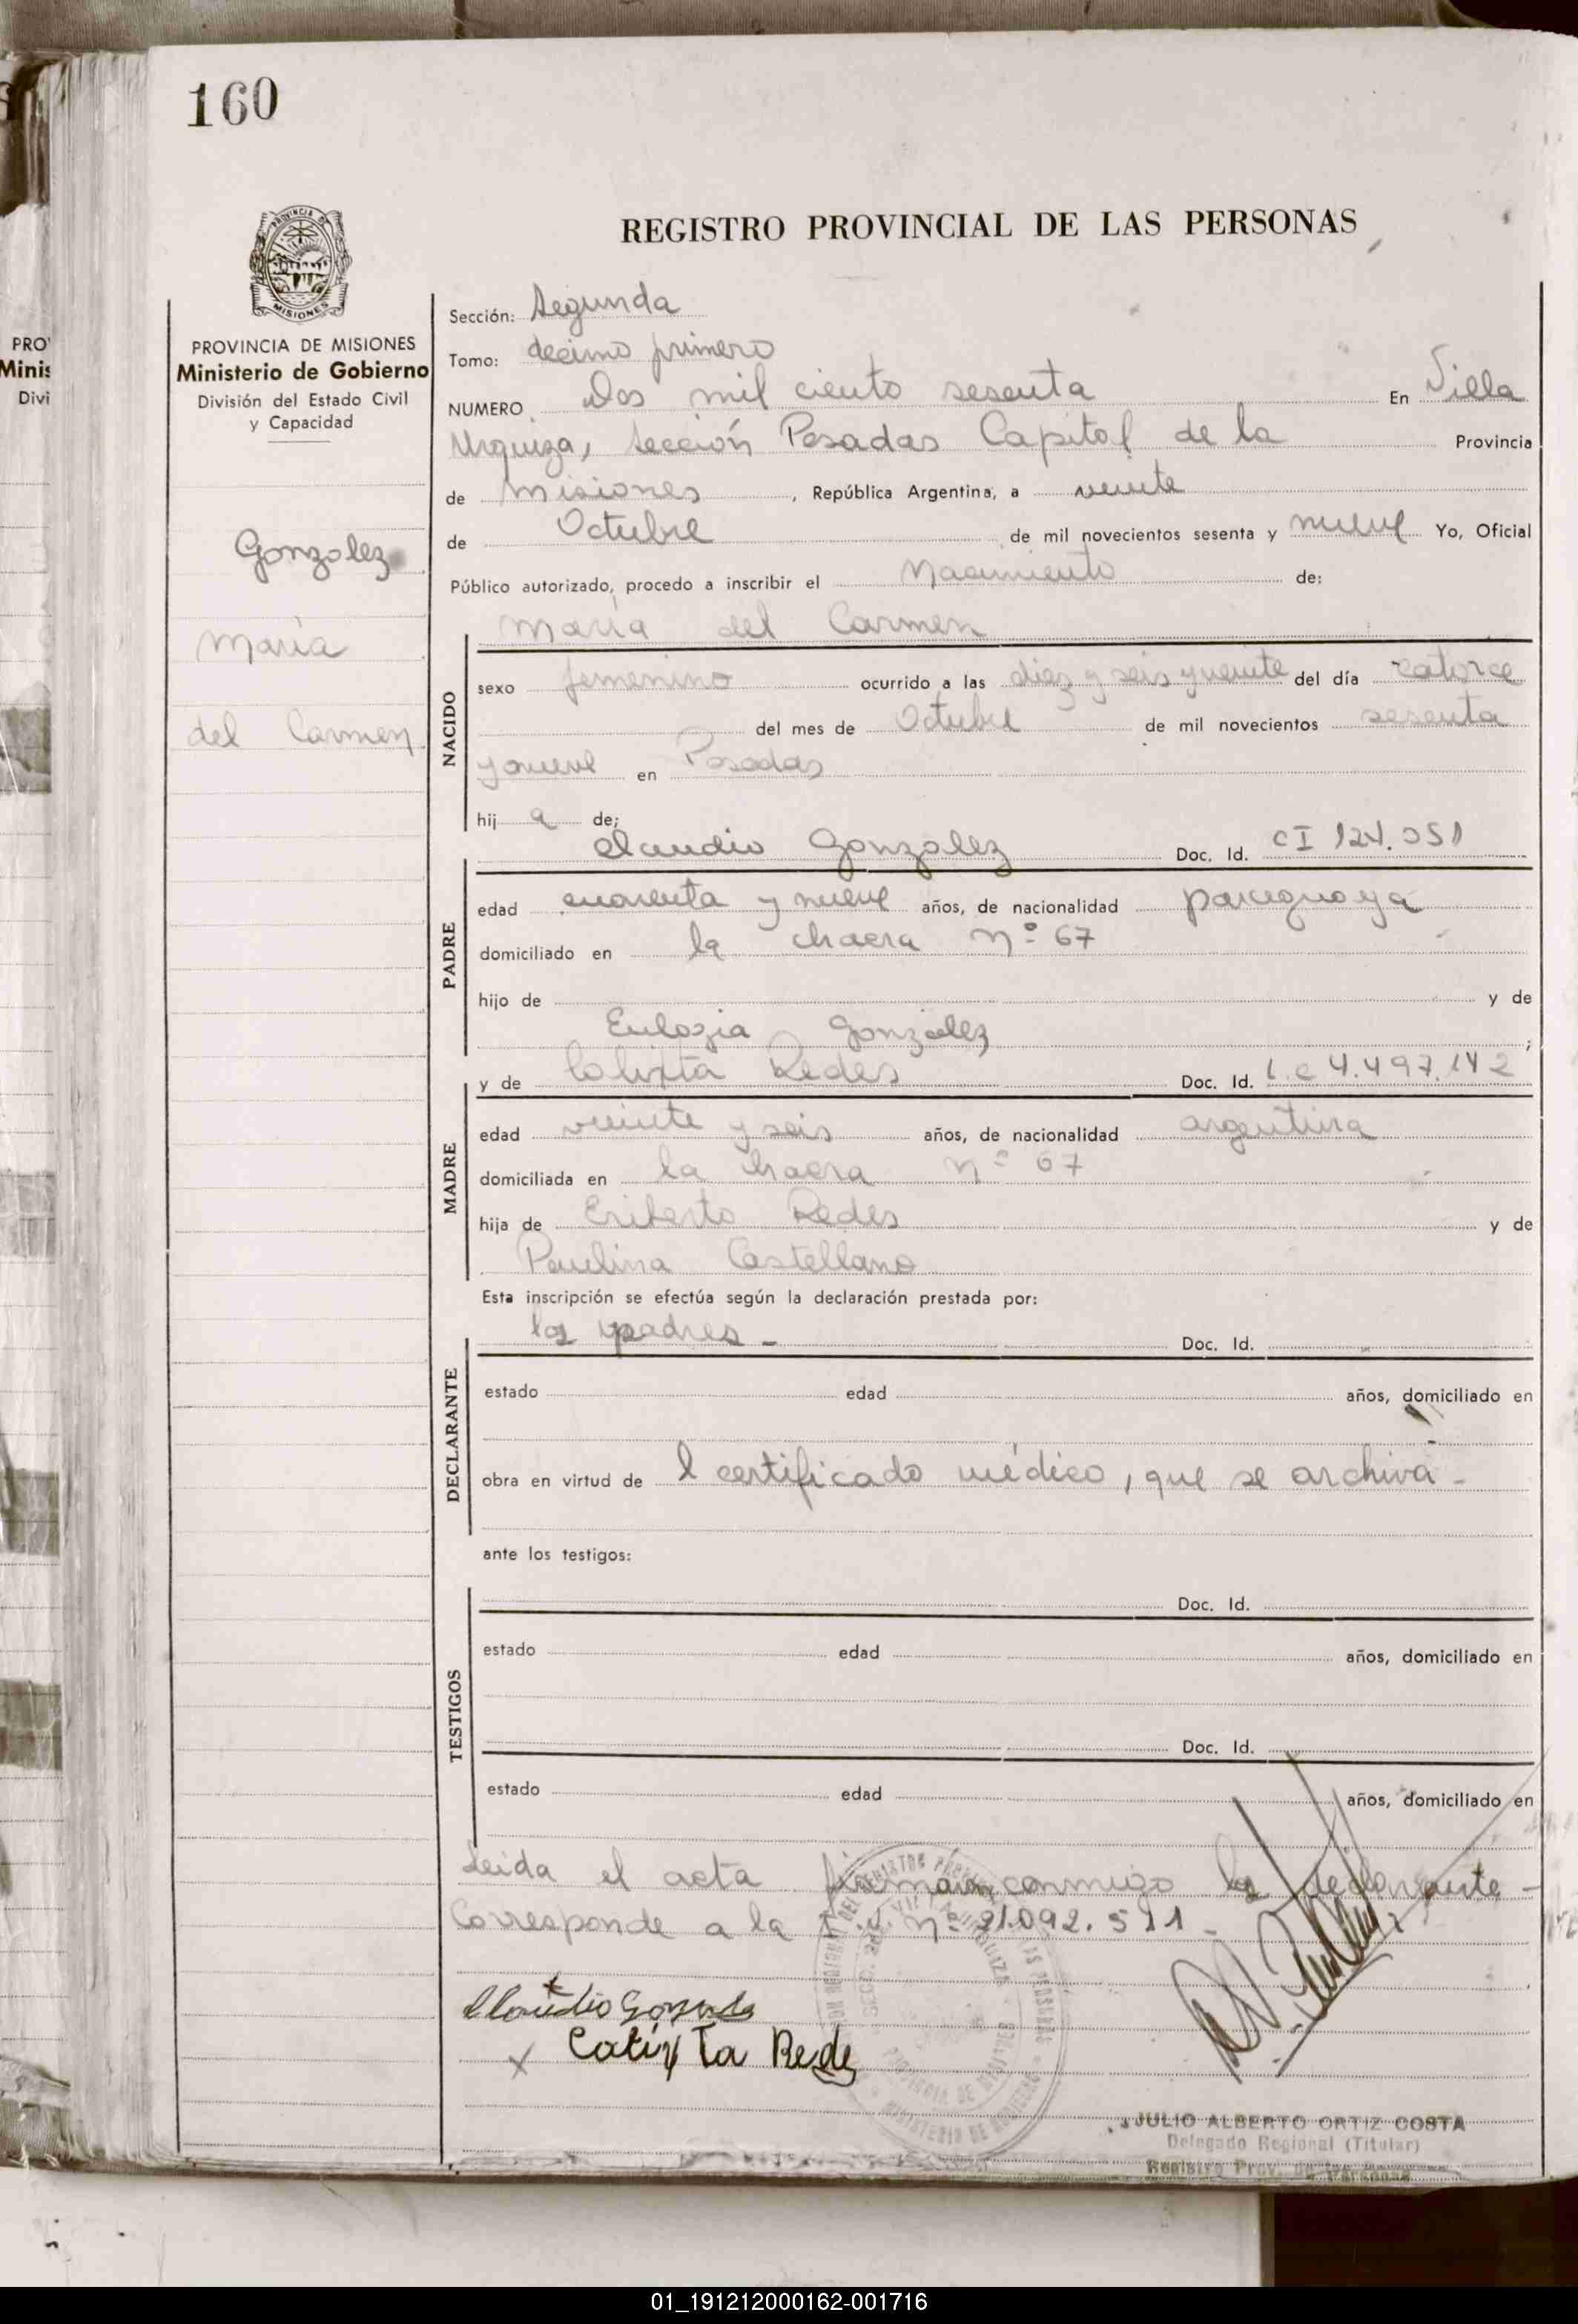 160
REGISTRO PROVINCIAL DE LAS PERSONAS
PROVINCIA DE
MISIONES
PROVINCIA DE MISIONES
Ministerio de Gobierno
División del Estado Civil
y Capacidad
Gonzalez
María
del Carmen
PRO
Minis
Divi
Sección: Segunda
Tomo: decimo primero
NUMERO Dos mil ciento sesenta En Villa
Urquiza, Sección Posadas Capital de la Provincia
de Misiones, República Argentina, a veinte
de Octubre de mil novecientos sesenta y nueve Yo, Oficial
Público autorizado, procedo a inscribir el Nacimiento de:
María del Carmen
NACIDO
sexo femenino ocurrido a las diez y seis y veinte del día catorce
del mes de Octubre de mil novecientos sesenta
y nueve en Posadas
hij a de;
Claudio Gonzalez Doc. Id. CI 124.051
PADRE
edad cuarenta y nueve años, de nacionalidad paraguaya
domiciliado en la chacra nº 67
hijo de y de
Eulogia González;
y de Calixta Redes Doc. Id. L.C 4.497.142
MADRE
edad veinte y seis años, de nacionalidad argentina
domiciliada en la chacra nº 67
hija de Eriberto Redes y de
Paulina Castellano
Esta inscripción se efectúa según la declaración prestada por:
los padres - Doc. Id.
DECLARANTE
estado edad años, domiciliado en
obra en virtud de l certificado médico, que se archiva -
ante los testigos:
TESTIGOS
Doc. Id.
estado edad años, domiciliado en
Doc. Id.
estado edad años, domiciliado en
Leida el acta firman conmigo los declarante -
Corresponde a la nº 21.092.511 -
Claudio Gonzalez
x Catixta Rede
JULIO ALBERTO ORTIZ COSTA
Delegado Regional (Titular)
Registro Prov. de las Personas
01_191212000162-001716